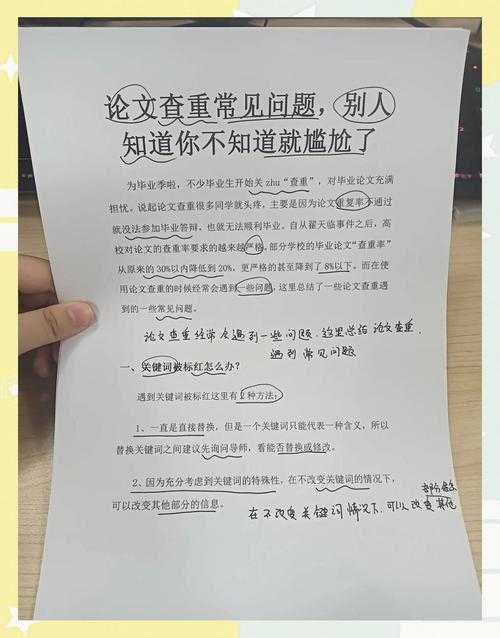 论文查重常见问题，别人
知道你不知道就尴尬了
为毕业季啦，不少毕业生开始关 zhu“查重”，对毕业论文充满
担忧。说起论文查重很多同学就头疼，主要是因为论文重复率不通过
就没法参加毕业答辩，也就无法顺利毕业。自从翟天临事件之后，高
校对论文的查重率要求的越来越严格，部分学校的毕业论文“查重率”
从原来的 30%以内降低到 20%，更严格的甚至降到了 8%以下。而在使
用论文查重的时候经常会遇到一些问题，这里总结了一些论文查重遇
到的一些常见问题。
论文查重经常会遇到一些问题，这里总结论文查重，
遇到常见问题
一、关键词被标红怎么办？
遇到关键词被标红这里有 2 种方法：
1、一直是直接替换，但是一个关键词只能代表一种含义，所以
替换关键词之间建议先询问导师，看能否替换或修改。
2、因为充分考虑到关键词的特殊性，在不改变关键词的情况下，
可以改变其他部分的信息。
部分信息
在不改变关键词情况下，可以改变其他